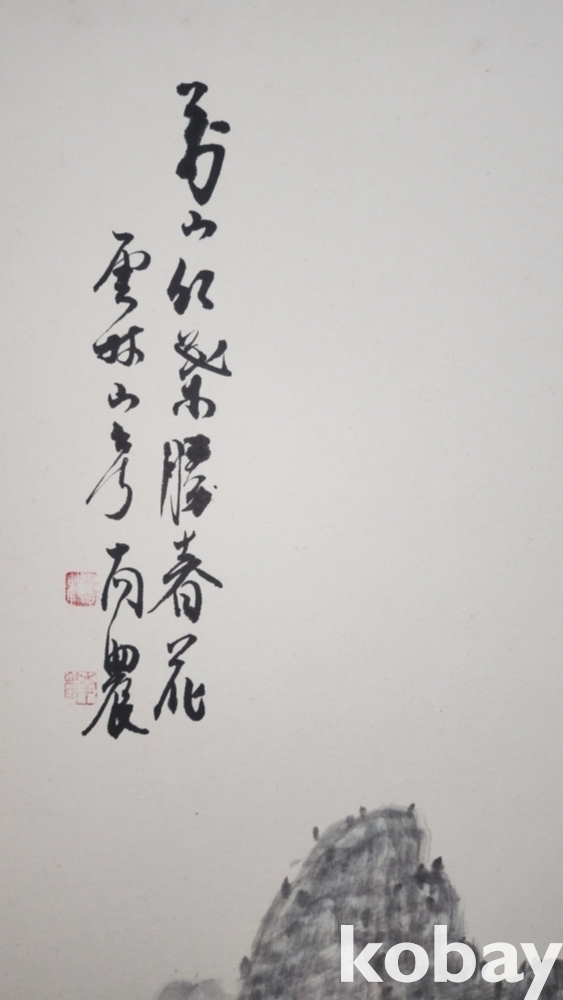 萬山紅紫勝春花
雲林山房南農
kobay